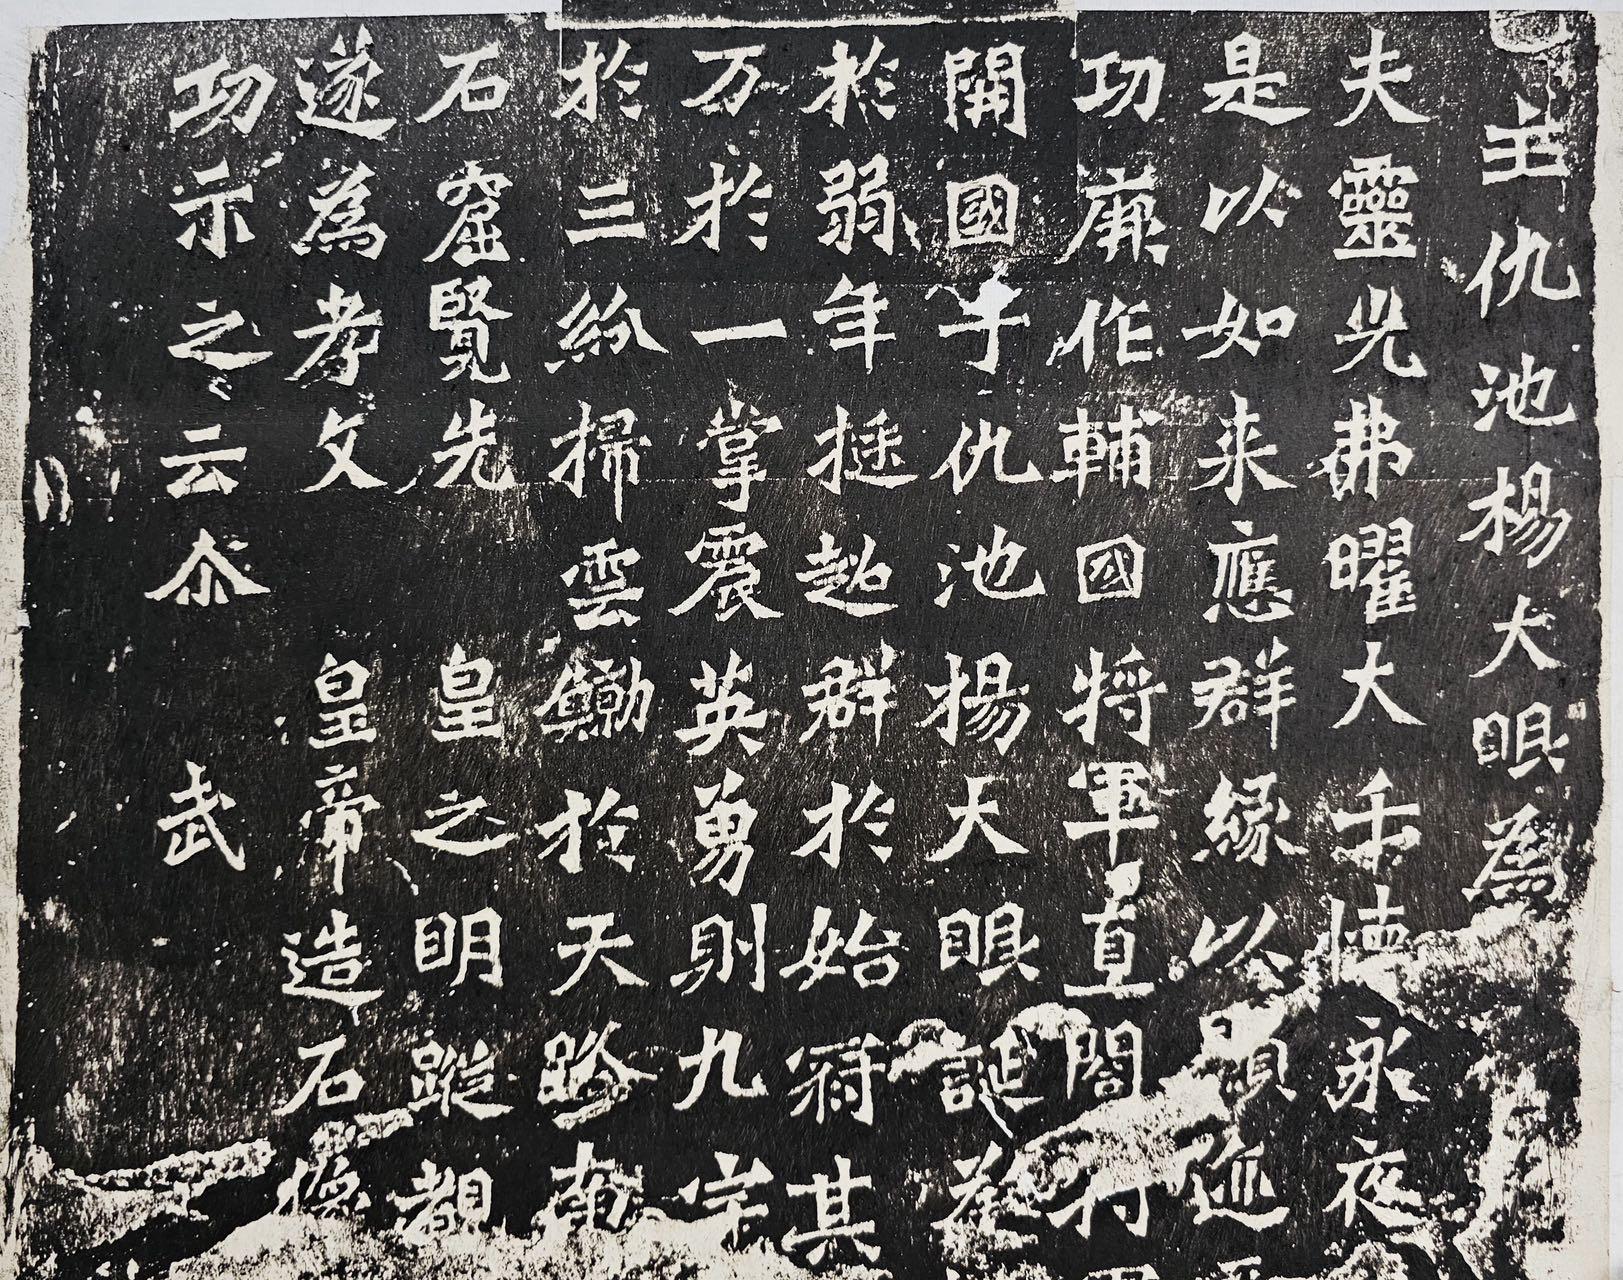 主仇池楊大眼為
夫靈光弗曜大千懷永夜
是以如来應群緣以顯迹
功厥作輔國將軍直閤
開國子仇池揚大眼誕
於弱年挺超群於始冠其
万於一掌震英勇則九宇
於三紛掃雲鯨於天路南
石窟覽先皇之明蹤覩
遂為孝文皇帝造石像
功示之云尒武